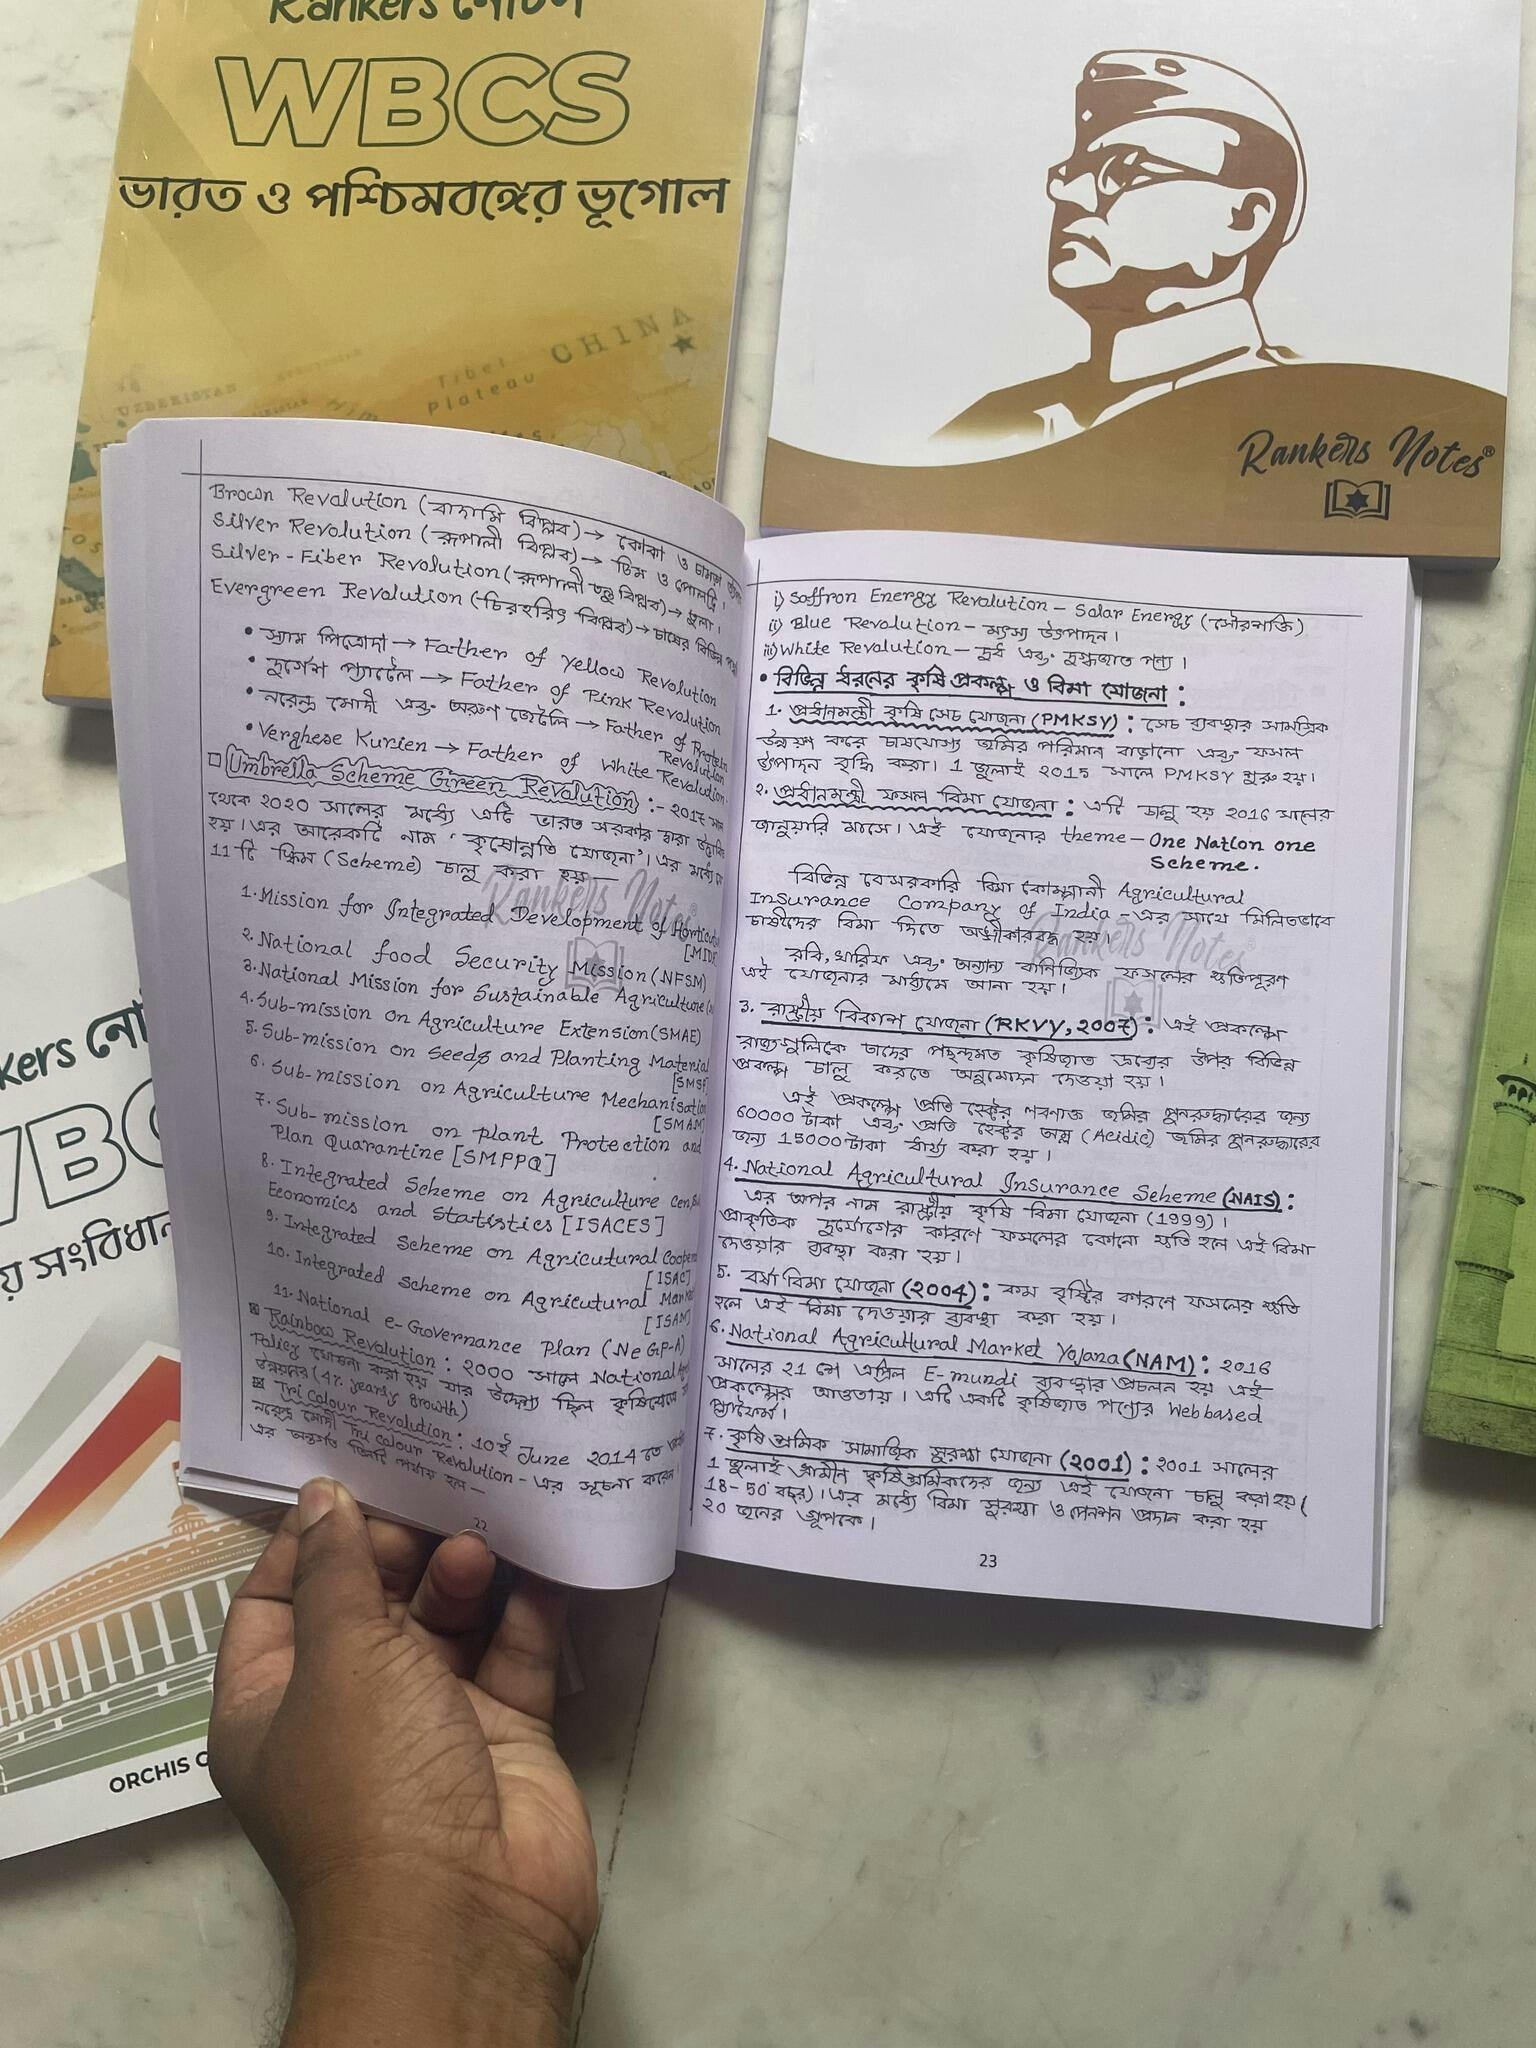 Rankers নোটস
WBCS
ভারত ও পশ্চিমবঙ্গের ভূগোল
CHINA
Tibet
Plateau
UZBEKISTAN
Rankers Notes®
Brown Revolution (বাদামি বিপ্লব) → কোকো ও চামড়া
Silver Revolution (রূপালী বিপ্লব) → ডিম ও পোলট্রি।
Silver-Fiber Revolution (রূপালী তন্তু বিপ্লব) → তুলা।
Evergreen Revolution (চিরহরিৎ বিপ্লব) → চাষের বিভিন্ন
• স্যাম পিত্রোদা → Father of Yellow Revolution
• দুর্গেশ প্যাটেল → Father of Pink Revolution
• নরেন্দ্র মোদী এবং অরুণ জেটলি → Father of Protein
Revolution
• Verghese Kurien → Father of White Revolution.
Umbrella Scheme Green Revolution :- 2017 সাল
থেকে 2020 সালের মধ্যে এটি ভারত সরকার দ্বারা
হয়। এর আরেকটি নাম 'কৃষোন্নতি যোজনা'। এর মধ্যে
11 টি স্কিম (Scheme) চালু করা হয় —
1. Mission for Integrated Development of
[MIDH
2. National food Security Mission (NFSM)
3. National Mission for Sustainable Agriculture
4. Sub-mission on Agriculture Extension (SMAE)
5. Sub-mission on Seeds and Planting Material
[SMSP
6. Sub-mission on Agriculture Mechanisation
[SMAM
7. Sub-mission on plant Protection and
Plan Quarantine [SMPPQ]
8. Integrated Scheme on Agriculture
Economics and Statistics [ISACES]
9. Integrated Scheme on Agricutural
[ISAC]
10. Integrated Scheme on Agricutural
[ISAM]
11. National e-Governance Plan (NeGP-A)
Rainbow Revolution : 2000 সালে National
Policy ঘোষনা করা হয় যার উদ্দেশ্য ছিল
উন্নয়নের (4% yearly Growth)
Tri Colour Revolution : 10ই June 2014 তে
নরেন্দ্র মোদী Tri Colour Revolution - এর সূচনা করেন।
এর অন্তর্গত তিনটি পর্যায় হল —
22
i) Saffron Energy Revolution – Solar Energy (সৌরশক্তি)
ii) Blue Revolution – মৎস্য উৎপাদন।
iii) White Revolution – দুধ এবং দুগ্ধজাত পণ্য।
• বিভিন্ন ধরনের কৃষি প্রকল্প ও বিমা যোজনা :
1. প্রধানমন্ত্রী কৃষি সেচ যোজনা (PMKSY) : সেচ ব্যবস্থার সামগ্রিক
উন্নয়ন করে চাষযোগ্য জমির পরিমান বাড়ানো এবং ফসল
উৎপাদন বৃদ্ধি করা। 1 জুলাই 2015 সালে PMKSY শুরু হয়।
2. প্রধানমন্ত্রী ফসল বিমা যোজনা : এটি চালু হয় 2016 সালের
জানুয়ারি মাসে। এই যোজনার theme – One Nation one
Scheme.
বিভিন্ন বেসরকারি বিমা কোম্পানী Agricultural
Insurance Company of India – এর সাথে মিলিতভাবে
চাষীদের বিমা দিতে অঙ্গীকারবদ্ধ হয়।
রবি, খারিফ এবং অন্যান্য বানিজ্যিক ফসলের ক্ষতিপূরণ
এই যোজনার মাধ্যমে আনা হয়।
3. রাষ্ট্রীয় বিকাশ যোজনা (RKVY, 2007) : এই প্রকল্পে
রাজ্যগুলিকে তাদের পছন্দমত কৃষিজাত দ্রব্যের উপর বিভিন্ন
প্রকল্প চালু করতে অনুমোদন দেওয়া হয়।
এই প্রকল্পে প্রতি হেক্টর লবনাক্ত জমির পুনরুদ্ধারের জন্য
60000 টাকা এবং প্রতি হেক্টর অম্ল (Acidic) জমির পুনরুদ্ধারের
জন্য 15000 টাকা ধার্য্য করা হয়।
4. National Agricultural Insurance Scheme (NAIS) :
এর অপর নাম রাষ্ট্রীয় কৃষি বিমা যোজনা (1999)।
প্রাকৃতিক দুর্যোগের কারণে ফসলের কোনো ক্ষতি হলে এই বিমা
দেওয়ার ব্যবস্থা করা হয়।
5. বর্ষা বিমা যোজনা (2004) : কম বৃষ্টির কারণে ফসলের ক্ষতি
হলে এই বিমা দেওয়ার ব্যবস্থা করা হয়।
6. National Agricultural Market Yojana (NAM) : 2016
সালের 21 শে এপ্রিল E-mundi ব্যবস্থার প্রচলন হয় এই
প্রকল্পের আওতায়। এটি একটি কৃষিজাত পণ্যের Web based
প্ল্যাটফর্ম।
7. কৃষি শ্রমিক সামাজিক সুরক্ষা যোজনা (2001) : 2001 সালের
1 জুলাই গ্রামীন কৃষি শ্রমিকদের জন্য এই যোজনা চালু করা হয় (
18-50 বছর)। এর মধ্যে বিমা সুরক্ষা ও পেনশন প্রদান করা হয়
20 জনের গ্রুপকে।
23
Rankers Notes
Rankers Notes
kers
WBC
সংবিধান
ORCHIS